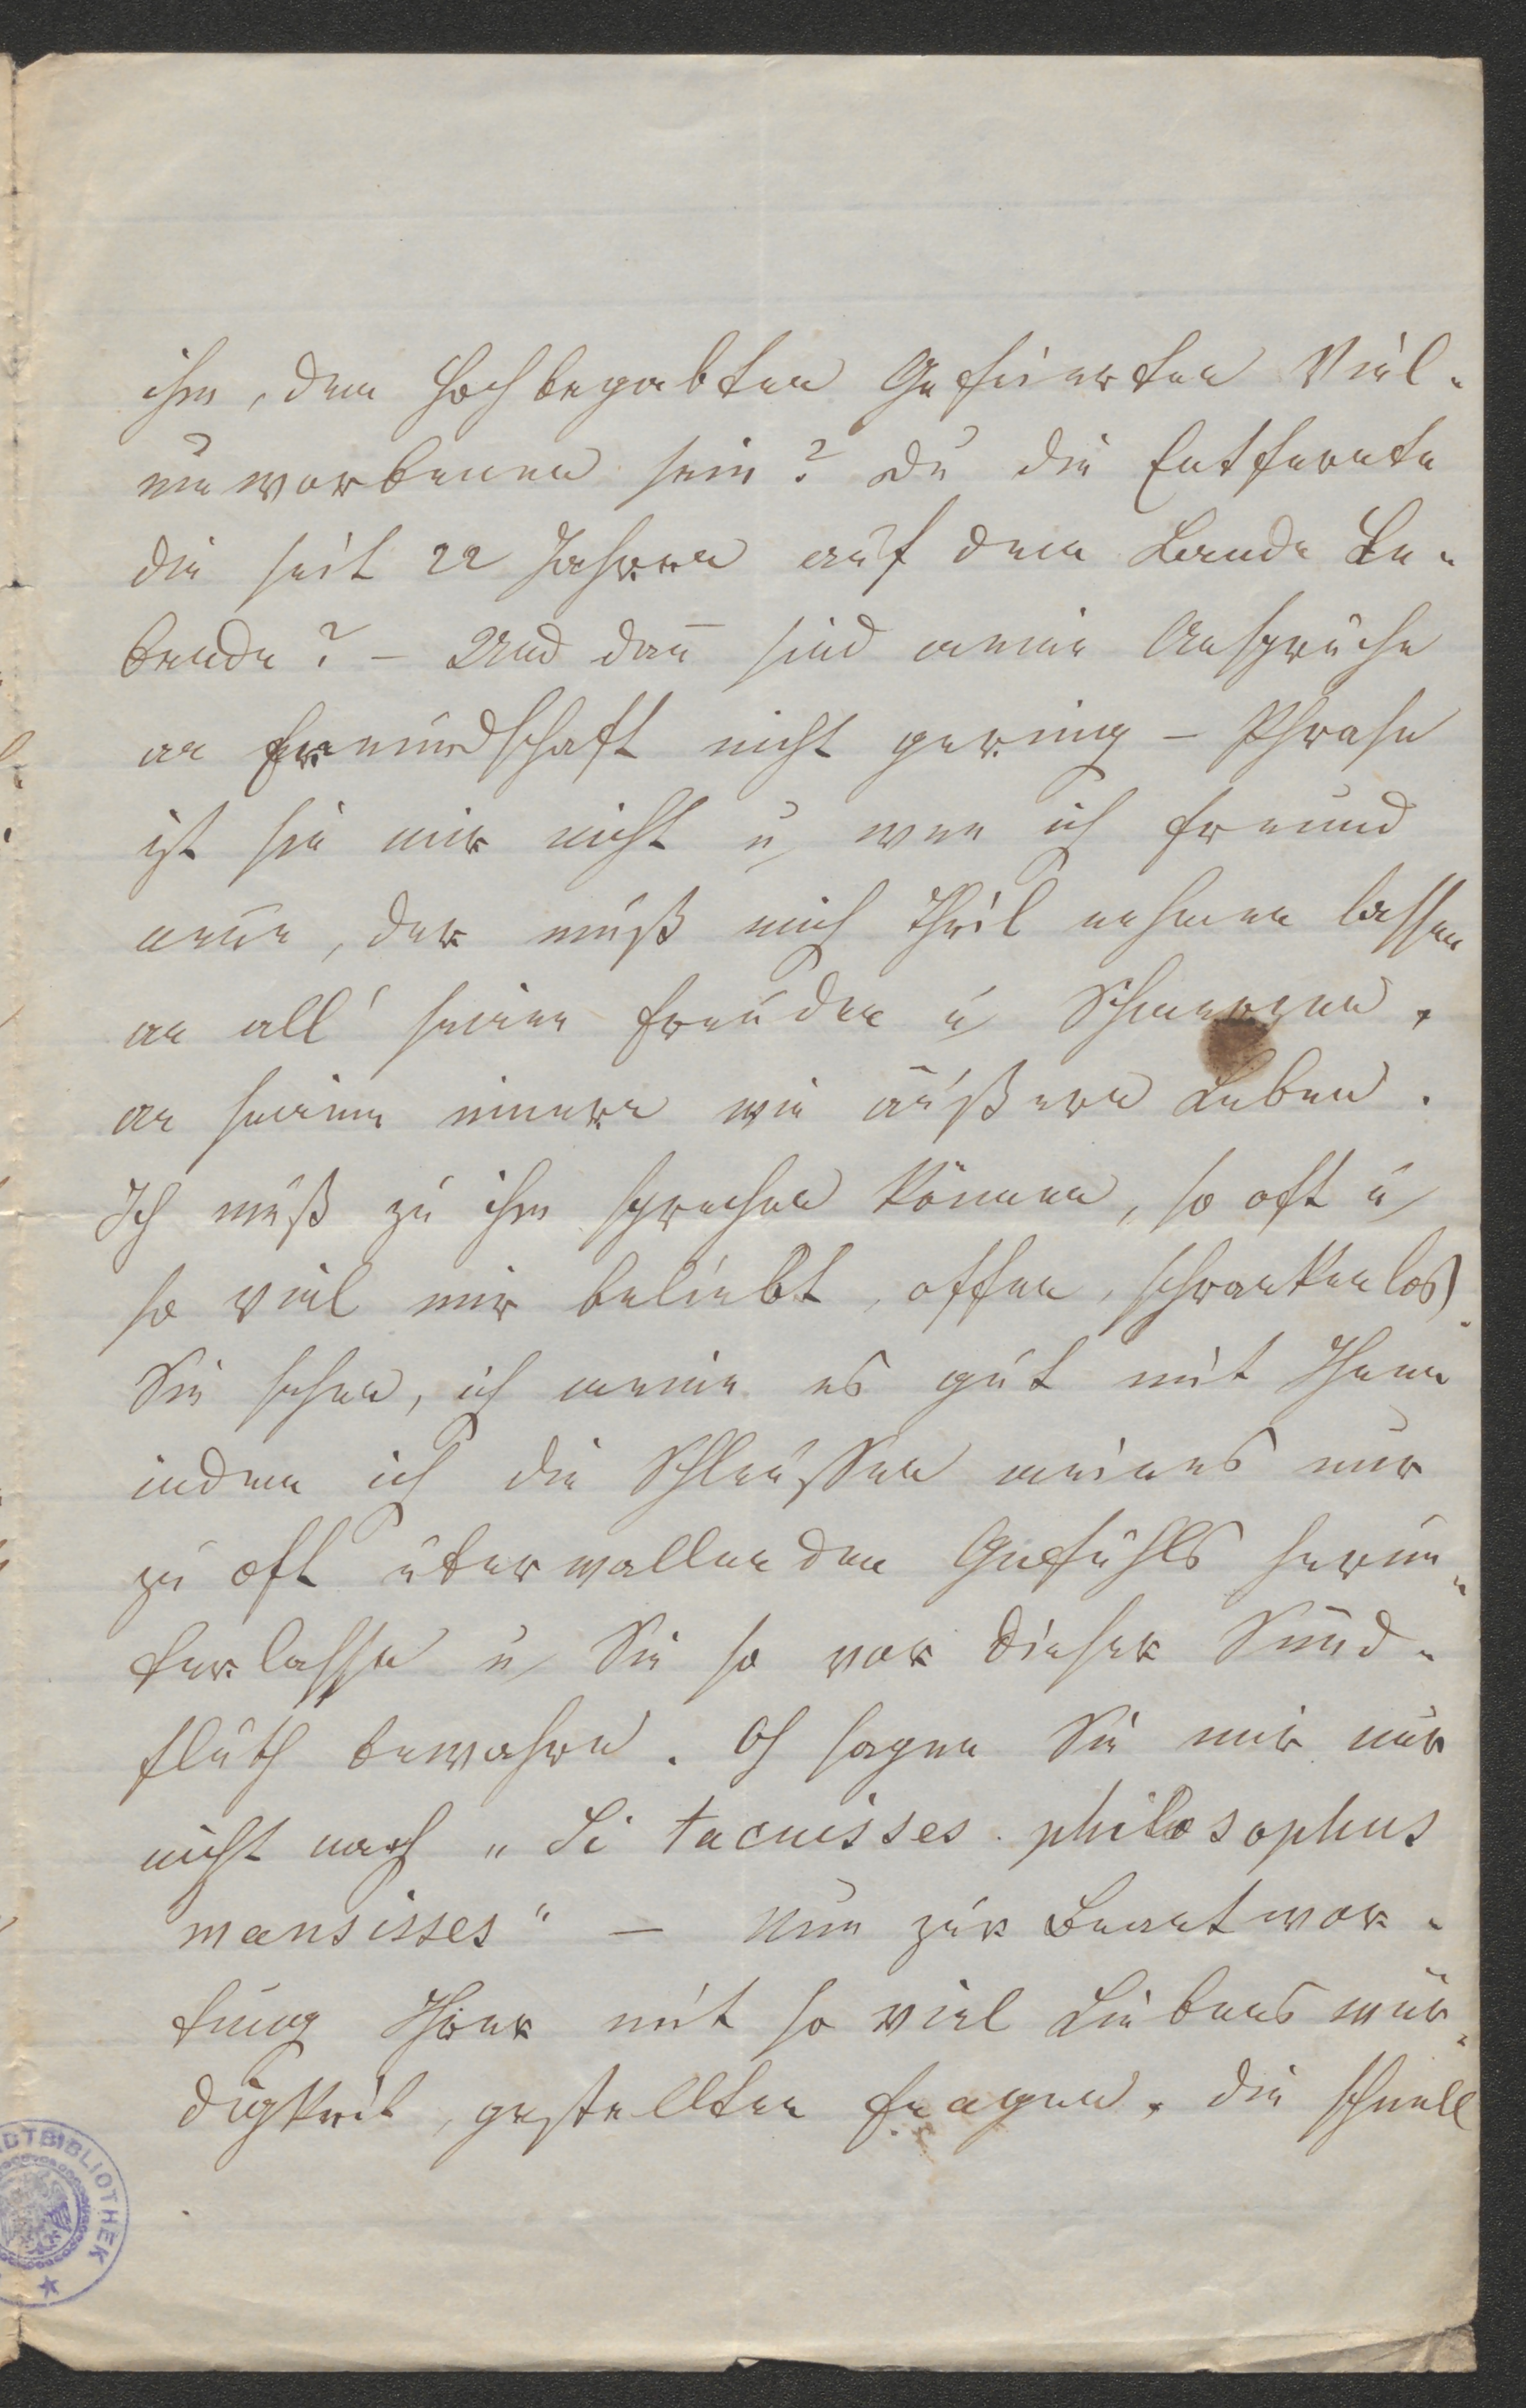 ihm, dem hochbegabten Gefeierten Viel-
umworbenen sein? Du die Entfernte
die seit 22 Jahren auf dem Lande Le-
bende? – Und dan̅ sind meine Ansprüche
an Freundschaft nicht gering – Phrase
ist sie mir nicht u. wen ich Freund
nen̅e, der muß mich Theil nehmen lassen
an all' seinen Freuden u. Schmerzen,
an seinem innern wie äußern Leben.
Ich muß zu ihm sprechen können, so oft u.
so viel mir beliebt, offen, schrankenlos.
Sie sehen, ich meine es gut mit Ihnen
indem ich die Schleußen meines nur
zu oft überwallenden Gefühls herun-
terlasse u. Sie so vor dieser Sünd-
fluth bewahre. Oh sagen Sie mir nur
nicht nach „Si tacuisses philosophus
mansisses" – Nun zur Beantwor-
tung Ihrer mit so viel Liebenswür-
digkeit, gestellten Fragen, die schnell
DTBIBLIOTHEK